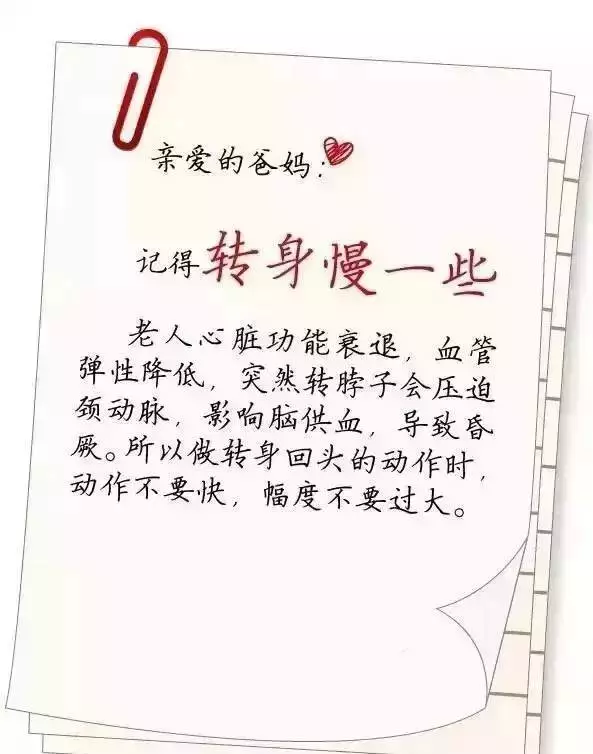 亲爱的爸妈:
记得转身慢一些
老人心脏功能衰退,血管
弹性降低,突然转脖子会压迫
颈动脉,影响脑供血,导致昏
厥。所以做转身回头的动作时,
动作不要快,幅度不要过大。